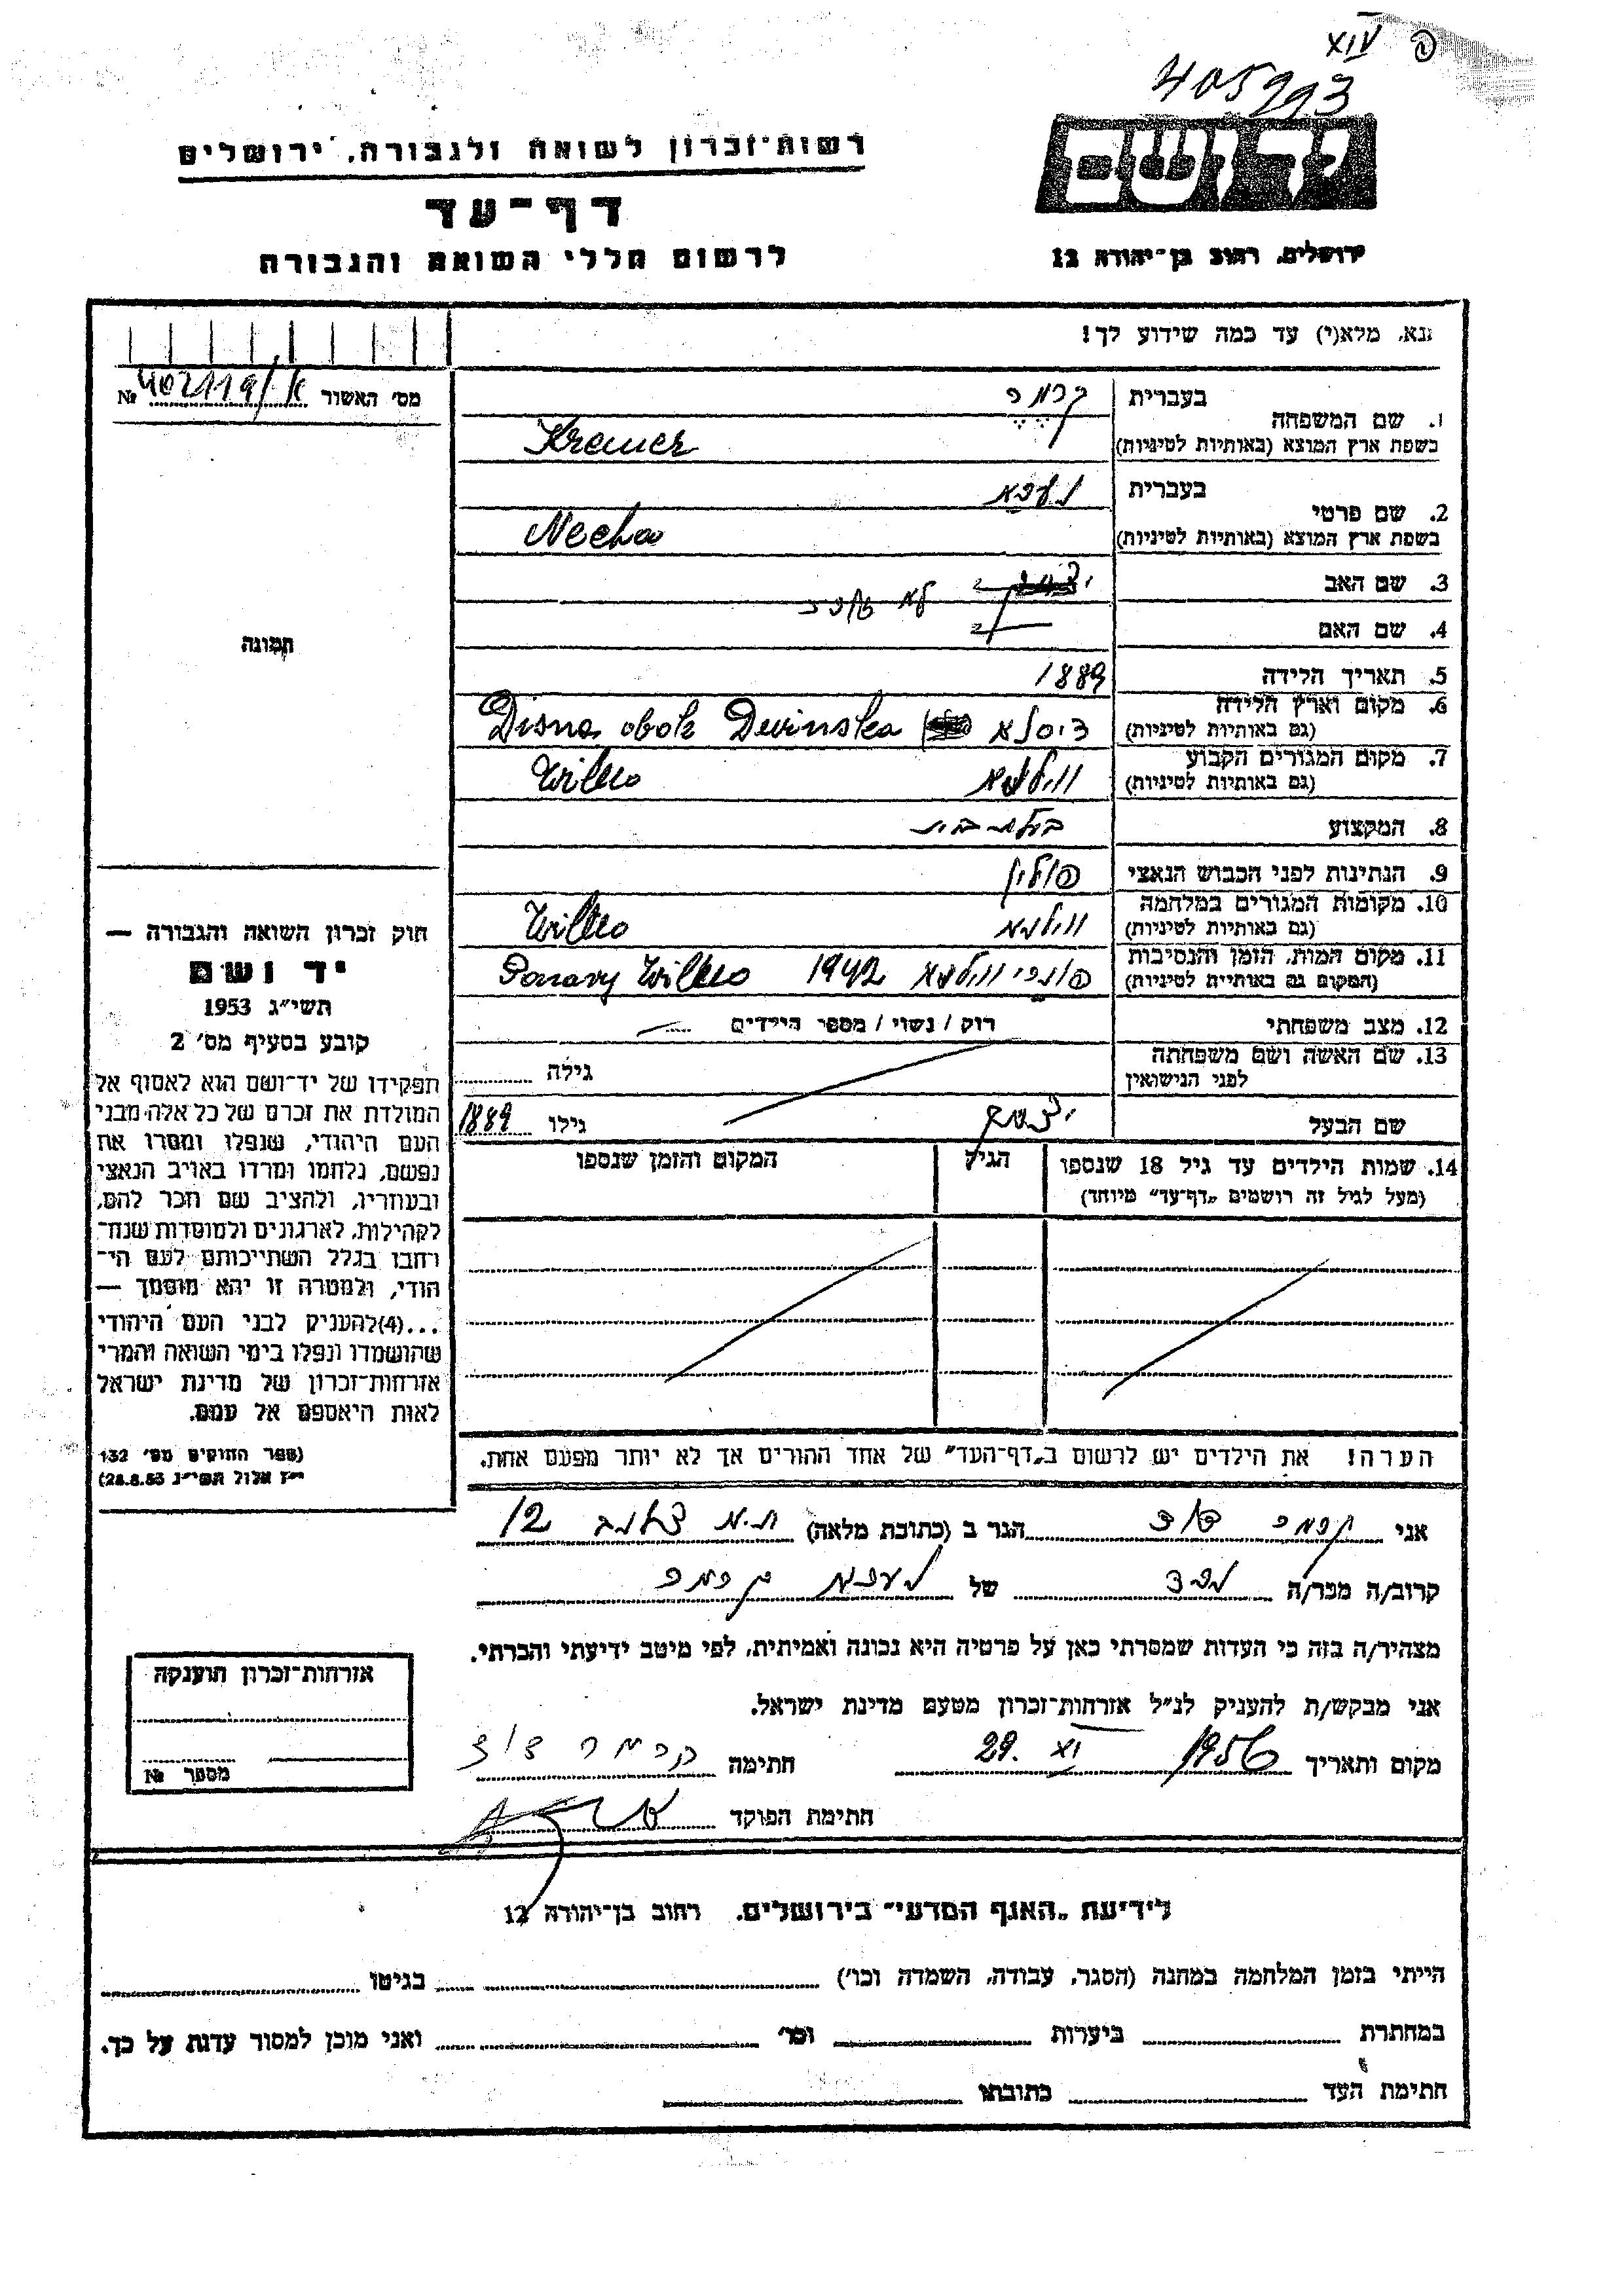 פ XIV
405293
רשות־זכרון לשואה ולגבורה, ירושלים
יד ושם
דף־עד
לרשום חללי השואה והגבורה
ירושלים, רחוב בן־יהודה 12
נא, מלא(י) עד כמה שידוע לך!
מס׳ האשור №
1. שם המשפחה
בעברית קרמר
בשפת ארץ המוצא (באותיות לטיניות) Kremer
2. שם פרטי
בעברית נעכא
בשפת ארץ המוצא (באותיות לטיניות) Necha
3. שם האב
לא
4. שם האם
5. תאריך הלידה 1889
6. מקום וארץ הלידה
(גם באותיות לטיניות) דיסנא Disna obok Dewinska
7. מקום המגורים הקבוע
(גם באותיות לטיניות) ווילנא Wilno
8. המקצוע בעלת בית
9. הנתינות לפני הכבוש הנאצי פולין
10. מקומות המגורים במלחמה
(גם באותיות לטיניות) ווילנא Wilno
11. מקום המות, הזמן והנסיבות
(המקום גם באותיות לטיניות) פונרי ווילנא 1942 Ponary Wilno
12. מצב משפחתי רוק / נשוי / מספר הילדים
13. שם האשה ושם משפחתה
לפני הנישואין
גילה
שם הבעל יצחק גילו 1889
14. שמות הילדים עד גיל 18 שנספו הגיל המקום והזמן שנספו
(מעל לגיל זה רושמים „דף־עד״ מיוחד)
תמונה
חוק זכרון השואה והגבורה —
יד ושם
תשי״ג 1953
קובע בסעיף מס׳ 2
תפקידו של יד־ושם הוא לאסוף אל
המולדת את זכרם של כל אלה מבני
העם היהודי, שנפלו ומסרו את
נפשם, נלחמו ומרדו באויב הנאצי
ובעוזריו, ולהציב שם וזכר להם,
לקהילות, לארגונים ולמוסדות שנח־
רחבו בגלל השתייכותם לעם הי־
הודי, ולמטרה זו יהא מוסמך —
...(4)להעניק לבני העם היהודי
שהושמדו ונפלו בימי השואה והמרי
אזרחות־זכרון של מדינת ישראל
לאות היאספם אל עמם.
(ספר החוקים מס׳ 132
י״ז אלול תשי״ג 28.8.53)
הערה! את הילדים יש לרשום ב„דף־העד״ של אחד ההורים אך לא יותר מפעם אחת.
אני קרמר דוד הגר ב (כתובת מלאה) ת.א 12
קרוב/ה מכר/ה נכד של נעכא קרמר
מצהיר/ה בזה כי העדות שמסרתי כאן על פרטיה היא נכונה ואמיתית, לפי מיטב ידיעתי והכרתי.
אני מבקש/ת להעניק לנ״ל אזרחות־זכרון מטעם מדינת ישראל.
מקום ותאריך 1956 XI 29. חתימה קרמר דוד
חתימת הפוקד
אזרחות־זכרון הוענקה
מספר №
לידיעת „האגף המדעי״ בירושלים, רחוב בן־יהודה 12
הייתי בזמן המלחמה במחנה (הסגר, עבודה, השמדה וכו׳) בגיטו
במחתרת ביערות וכו׳ ואני מוכן למסור עדות על כך.
חתימת העד כתובתו